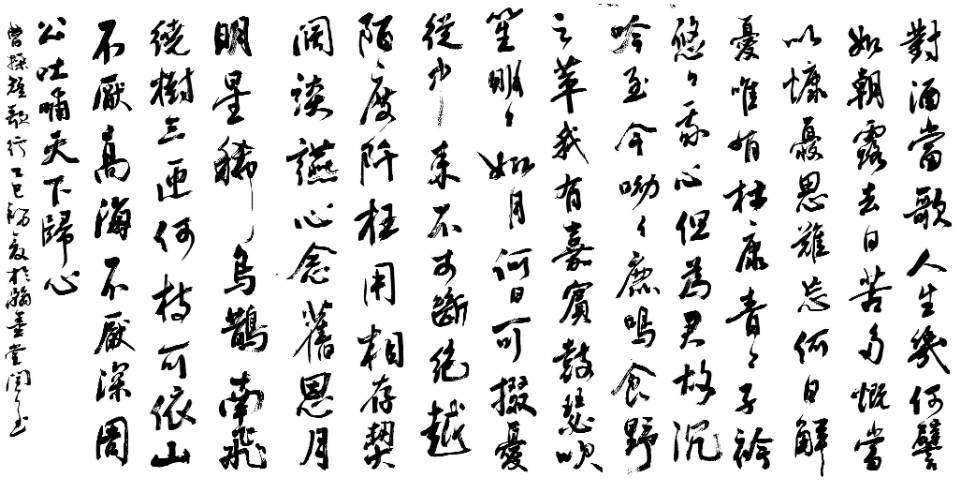 對酒當歌人生幾何譬
如朝露去日苦多慨當
以慷憂思難忘何日解
憂唯有杜康青〻子衿
悠〻我心但為君故沉
吟至今呦〻鹿鳴食野
之苹我有嘉賓鼓瑟吹
笙明〻如月何日可掇憂
從中來不可斷絕越
陌度阡枉用相存契
闊談讌心念舊恩月
明星稀烏鵲南飛
繞樹三匝何枝可依山
不厭高海不厭深周
公吐哺天下歸心
曹操短歌行乙巳初夏於翰墨堂